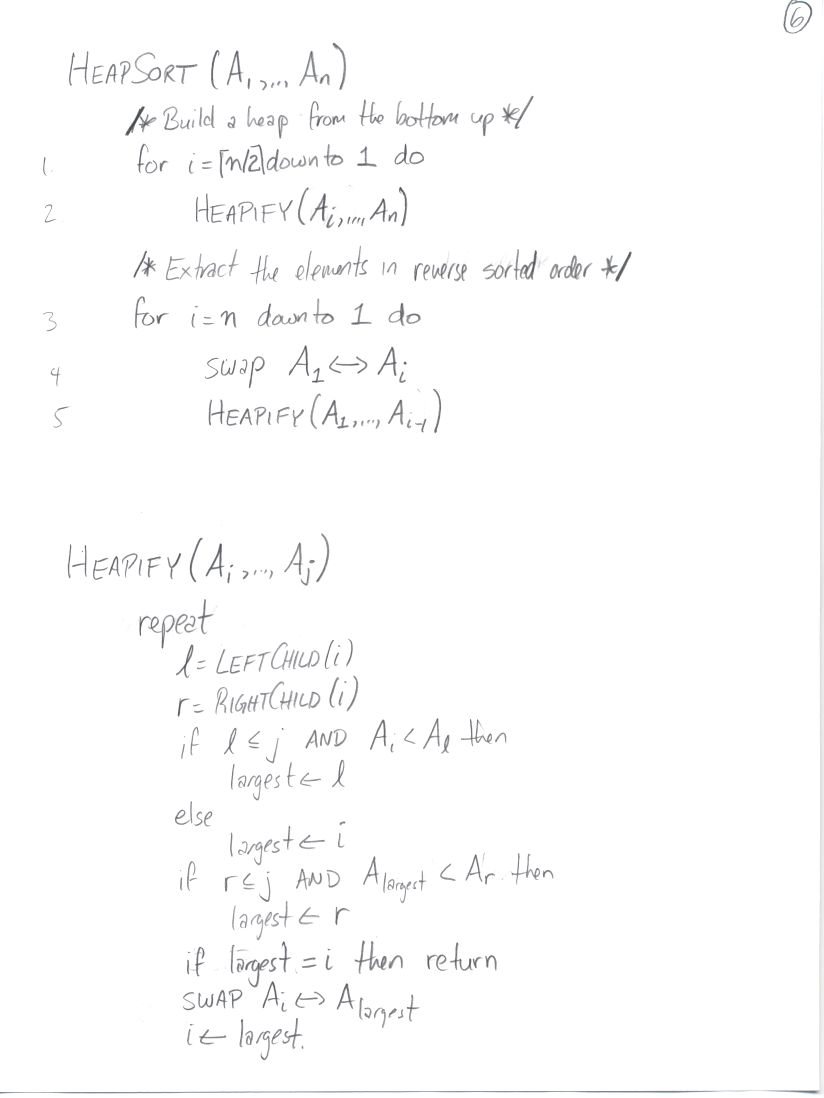 6
HEAPSORT (A₁,..., Aₙ)
/* Build a heap from the bottom up */
1. for i = ⌈n/2⌉ down to 1 do
2 HEAPIFY (Aᵢ,..., Aₙ)
/* Extract the elements in reverse sorted order */
3 for i = n down to 1 do
4 swap A₁ ↔ Aᵢ
5 HEAPIFY (A₁,..., Aᵢ₋₁)
HEAPIFY (Aᵢ,..., Aⱼ)
repeat
l = LEFTCHILD (i)
r = RIGHTCHILD (i)
if l ≤ j AND Aᵢ < Aₗ then
largest ← l
else
largest ← i
if r ≤ j AND A_largest < Aᵣ then
largest ← r
if largest = i then return
SWAP Aᵢ ↔ A_largest
i ← largest.